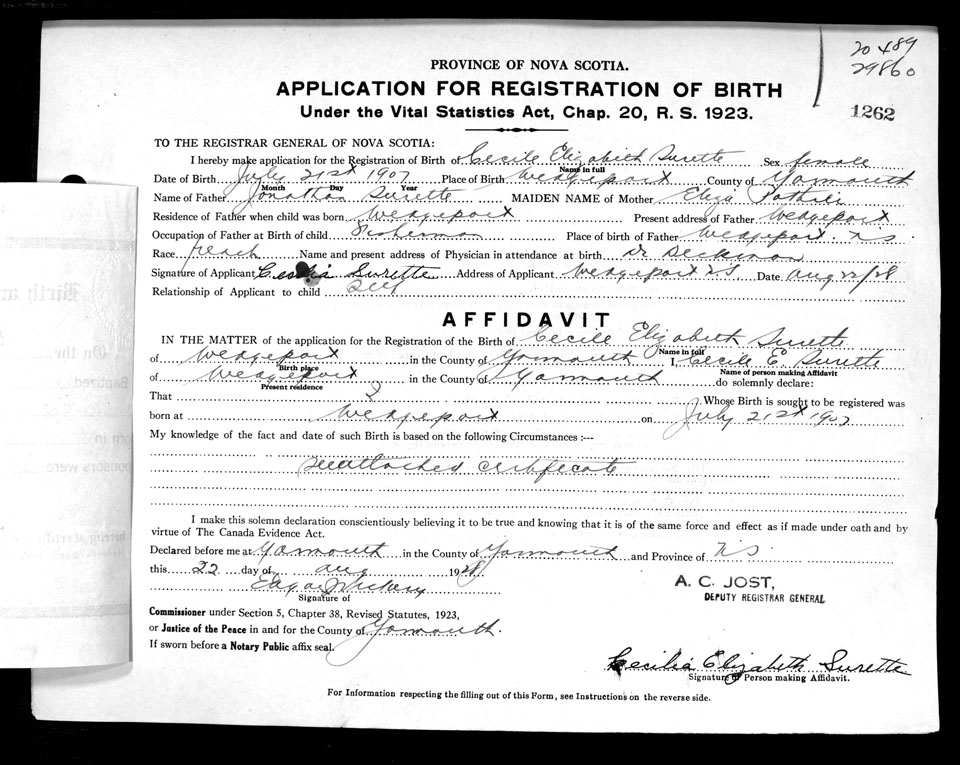 20489
29860
PROVINCE OF NOVA SCOTIA.
APPLICATION FOR REGISTRATION OF BIRTH
Under the Vital Statistics Act, Chap. 20, R. S. 1923.
1262
TO THE REGISTRAR GENERAL OF NOVA SCOTIA:
I hereby make application for the Registration of Birth of Cecile Elizabeth Surette Sex female
Name in full
Date of Birth July 21st 1907 Place of Birth Wedgeport County of Yarmouth
Month Day Year
Name of Father Jonathan Surette MAIDEN NAME of Mother Eliza Pothier
Residence of Father when child was born Wedgeport Present address of Father Wedgeport
Occupation of Father at Birth of child Fisherman Place of birth of Father Wedgeport N.S.
Race french Name and present address of Physician in attendance at birth Dr
Signature of Applicant Surette Address of Applicant Wedgeport N S Date Aug 22/28
Relationship of Applicant to child Self
AFFIDAVIT
IN THE MATTER of the application for the Registration of the Birth of Cecile Elizabeth Surette
Name in full
of Wedgeport in the County of Yarmouth I, Cecile E. Surette
Birth place Name of person making Affidavit
of Wedgeport in the County of Yarmouth do solemnly declare:
Present residence
That I Whose Birth is sought to be registered was
born at Wedgeport on July 21st 1907
My knowledge of the fact and date of such Birth is based on the following Circumstances :—
See attached certificate
I make this solemn declaration conscientiously believing it to be true and knowing that it is of the same force and effect as if made under oath and by
virtue of The Canada Evidence Act.
Declared before me at Yarmouth in the County of Yarmouth and Province of N.S.
this 22 day of Aug 1928
A. C. JOST,
DEPUTY REGISTRAR GENERAL
Edgar
Signature of
Commissioner under Section 5, Chapter 38, Revised Statutes, 1923,
or Justice of the Peace in and for the County of Yarmouth.
If sworn before a Notary Public affix seal.
Cecilia Elizabeth Surette
Signature of Person making Affidavit.
For Information respecting the filling out of this Form, see Instructions on the reverse side.